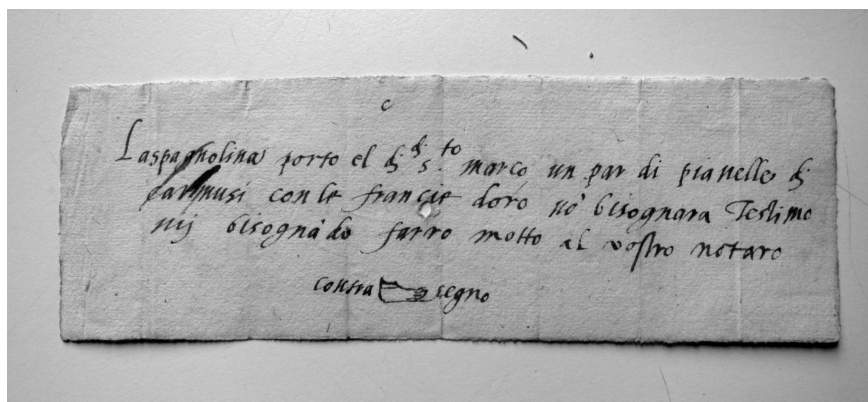 c
Laspagnolina porto el dì dì s.to marco un par di pianelle di
carmusi con le francie doro nō bisognara Testimo
nij bisognādo farro motto al vostro notaro
contra segno